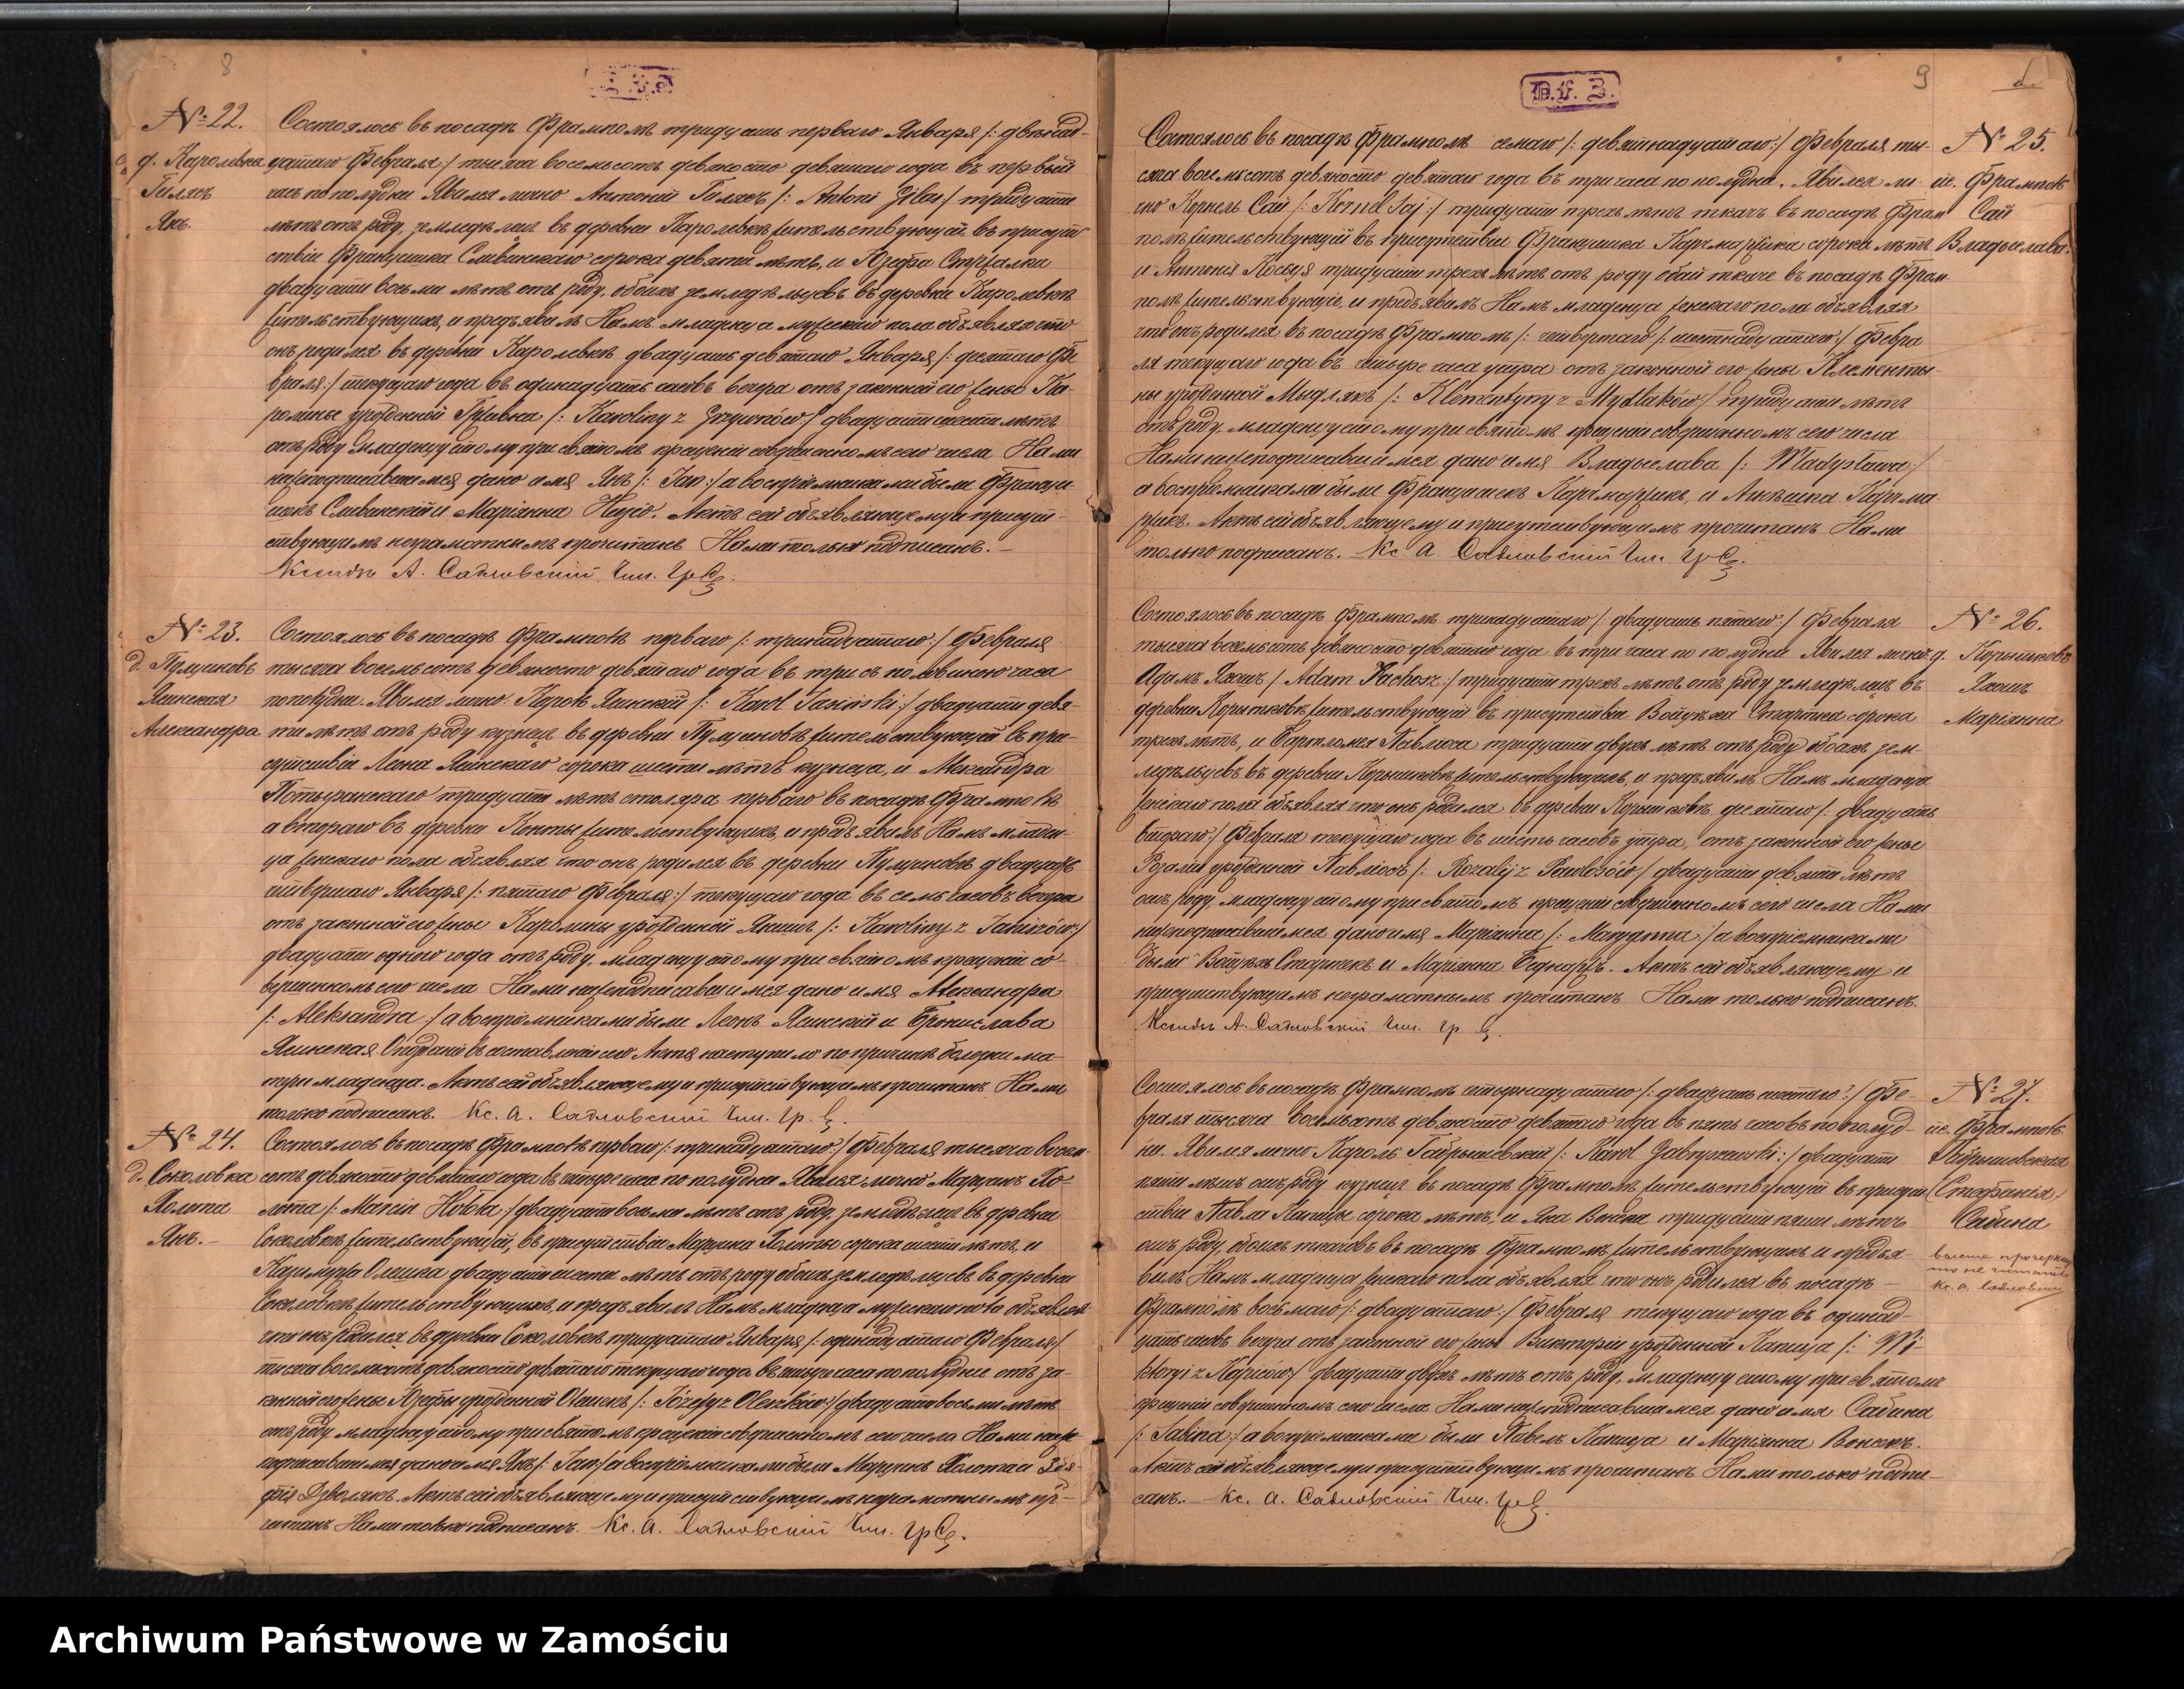 8
№ 22.
д. Каролевка
Гилясъ
Янъ.
Состоялось въ посадѣ Фрамполѣ тридцать перваго Января /: двѣнад-
цатаго Февраля :/ тысяча восемьсотъ девяносто девятаго года въ первый
часъ по полудни. Явился лично Антоній Гилясъ /: Antoni Gilas :/ тридцати
лѣтъ отъ роду, земледѣлецъ въ деревни Каролевкѣ жительствующій, въ присут-
ствіи Францишка Сливинскаго сорока девяти лѣтъ, и Юзефа Стржалки
двадцати восьми лѣтъ отъ роду, обоихъ земледѣльцевъ въ деревни Каролевкѣ
жительствующихъ, и предъявилъ Намъ младенца мужескаго пола объявляя что
онъ родился въ деревни Каролевкѣ двадцать девятаго Января /: десятаго Фе-
враля :/ текущаго года въ одинадцать часовъ вечера отъ законной его жены Ка-
ролины урожденной Грживна /: Karoliny z Grzywnów :/ двадцати шести лѣтъ
отъ роду. Младенцу этому при святомъ крещеніи совершенномъ сего числа Нами
нижеподписавшимся дано имя Янъ /: Jan :/ а воспріемниками были Францы-
шекъ Сливинскій и Маріянна . Актъ сей объявляющему и присут-
ствующимъ неграмотнымъ прочитанъ Нами только подписанъ. —
Ксендзъ А. Садловскій Чин. Гр. С.
№ 23.
д. Пулчиновъ
Ясинская
Александра
Состоялось въ посадѣ Фрамполѣ перваго /: тринадцатаго :/ Февраля
тысяча восемьсотъ девяносто девятаго года въ три съ половиною часа
по полудни. Явился лично Кароль Ясинскій /: Karol Jasiński :/ двадцати девя-
ти лѣтъ отъ роду кузнецъ въ деревни Пулчиновѣ жительствующій въ при-
сутствіи Леона Ясинскаго сорока шести лѣтъ кузнеца, и Александра
Потыранскаго тридцати лѣтъ столяра перваго въ посадѣ Фрамполѣ
а втораго въ деревни Конты жительствующихъ, и предъявилъ Намъ младен-
ца женскаго пола объявляя что онъ родился въ деревни Пулчиновѣ двадцать
четвертаго Января /: пятаго Февраля :/ текущаго года въ семь часовъ вечера
отъ законной его жены Каролины урожденной Янишъ /: Karoliny z Janiszów :/
двадцати одного года отъ роду, младенцу этому при святомъ крещеніи со-
вершенномъ сего числа Нами нижеподписавшимся дано имя Александра
/: Aleksandra :/ а воспріемниками были Леонъ Ясинскій и Брониславa
Ясинская. Опозданіе въ составленіи сего Акта наступило по причинѣ болезни ма-
тери младенца. Актъ сей объявляющему и присутствующимъ прочитанъ Нами
только подписанъ. Кс. А. Садловскій Чин. Гр. С.
№ 24.
д. Соколовка
Холота
Янъ. —
Состоялось въ посадѣ Фрамполѣ перваго /: тринадцатаго :/ Февраля тысяча восемь-
сотъ девяносто девятаго года въ четыре часа по полудни. Явился лично Марцинъ Хо-
лота /: Marcin Hołota :/ двадцати восьми лѣтъ отъ роду, земледѣлецъ въ деревни
Соколовкѣ жительствующій, въ присутствіи Марцина Холоты сорока шести лѣтъ, и
Казимержа Олешка двадцати шести лѣтъ отъ роду обоихъ земледѣльцевъ въ деревни
Соколовкѣ жительствующихъ, и предъявилъ Намъ младенца мужескаго пола объявляя
что онъ родился въ деревни Соколовкѣ тридцатаго Января /: одинадцатаго Февраля :/
тысяча восемьсотъ девяносто девятаго текущаго года въ четыре часа по полудни отъ за-
конной его жены Юзефы урожденной Олешекъ /: Józefy z Oleszków :/ двадцати восьми лѣтъ
отъ роду младенцу этому при святомъ крещеніи совершенномъ сего числа Нами ниже-
подписавшимся дано имя Янъ /: Jan :/ а воспріемниками были Марцинъ Холота и Зо-
фія Дзволякъ. Актъ сей объявляющему и присутствующимъ неграмотнымъ про-
читанъ Нами только подписанъ. Кс. А. Садловскій Чин. Гр. С.
9
D.G.Z.
№ 25.
пос. Фрамполь
Сай
Владыслава.
Состоялось въ посадѣ Фрамполѣ семаго /: девятнадцатаго :/ Февраля ты-
сяча восемьсотъ девяносто девятаго года въ три часа по полудни. Явился ли-
чно Корнель Сай /: Kornel Saj :/ тридцати трехъ лѣтъ ткачъ въ посадѣ Фрам-
полѣ жительствующій въ присутствіи Францишка Карчмаржика сорока лѣтъ
и Антонія Косьця тридцати трехъ лѣтъ отъ роду обой ткачи въ посадѣ Фрам-
полѣ жительствующіе, и предъявилъ Намъ младенца женскаго пола объявляя
что онъ родился въ посадѣ Фрамполѣ /: четвертаго /: шестнадцатаго :/ Февра-
ля текущаго года въ четыре часа утра отъ законной его жены Клементы-
ны урожденной Мыдлякъ /: Klementyny z Mydlaków :/ тридцати лѣтъ
отъ роду, младенцу этому при святомъ крещеніи совершенномъ сего числа
Нами нижеподписавшимся дано имя Владыслава /: Władysława :/
а воспріемниками были Францишекъ Карчмаржикъ, и Анеешка Карчма-
ржикъ. Актъ сей объявляющему и присутствующимъ прочитанъ Нами
только подписанъ. Кс. А. Садловскій Чин. Гр. С.
№ 26.
д. Корытковъ
Яхошъ
Маріянна
Состоялось въ посадѣ Фрамполѣ тринадцатаго /: двадцать пятаго :/ Февраля
тысяча восемьсотъ девяносто девятаго года въ три часа по полудни. Явился лично
Адамъ Яхошъ /: Adam Jachosz :/ тридцати трехъ лѣтъ отъ роду земледѣлецъ въ
деревни Корытковѣ жительствующій въ присутствіи Войцеха Стартека сорока
трехъ лѣтъ, и Бартломея Павлюса тридцати двухъ лѣтъ отъ роду обоихъ зем-
ледѣльцевъ въ деревни Корытковѣ жительствующихъ, и предъявилъ Намъ младенца
женскаго пола объявляя что онъ родился въ деревни Корытковѣ десятаго /: двадцать
втораго :/ Февраля текущаго года въ шесть часовъ утра, отъ законной его жены
Розаліи урожденной Павлюсъ /: Rozalij z Pawlosów :/ двадцати девяти лѣтъ
отъ роду, младенцу этому при святомъ крещеніи совершенномъ сего числа Нами
нижеподписавшимся дано имя Маріянна /: Maryanna :/ а воспріемниками
были Войцехъ Стартекъ и Маріянна Беднаржъ. Актъ сей объявляющему и
присутствующимъ неграмотнымъ прочитанъ Нами только подписанъ.
Ксендзъ А. Садловскій Чин. Гр. С.
№ 27.
пос. Фрамполь
Габрышевская
(Стефанія)
Сабина
выше прочеркну-
то не читать
Кс. А. Садловскій
Состоялось въ посадѣ Фрамполѣ четырнадцатаго /: двадцать шестаго :/ Фе-
враля тысяча восемьсотъ девяносто девятаго года въ пять часовъ по полуд-
ни. Явился лично Кароль Габрышевскій /: Karol Gabryszewski :/ двадцати
пяти лѣтъ отъ роду кузнецъ въ посадѣ Фрамполѣ жительствующій въ присут-
ствіи Павла Капицы сорока лѣтъ, и Яна Венска тридцати пяти лѣтъ
отъ роду, обоихъ ткачовъ въ посадѣ Фрамполѣ жительствующихъ и предъя-
вилъ Намъ младенца женскаго пола объявляя что онъ родился въ посадѣ —
Фрамполѣ восьмаго /: двадцатаго :/ Февраля текущаго года въ одинад-
цать часовъ вечера отъ законной его жены Викторіи урожденной Капица /: Wi-
ktoryi z Kapiców :/ двадцати двухъ лѣтъ отъ роду, младенцу этому при святомъ
крещеніи совершенномъ сего числа Нами нижеподписавшимся дано имя Сабина
/: Sabina :/ а воспріемниками были Павелъ Капица и Маріянна Венсекъ.
Актъ сей объявляющему и присутствующимъ прочитанъ Нами только подпи-
санъ. — Кс. А. Садловскій Чин. Гр. С.
Archiwum Państwowe w Zamościu